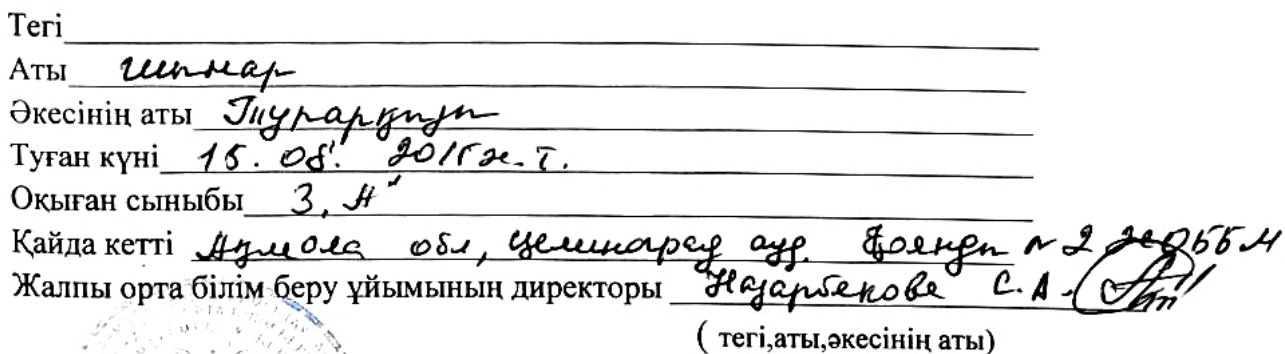 Тегі
Аты Шынар
Әкесінің аты Тұрарқызы
Туған күні 15. 05. 2015ж.т.
Оқыған сыныбы 3 "А"
Қайда кетті Ақмола обл, Целиноград ауд. Қоянды №2 ЖОББМ
Жалпы орта білім беру ұйымының директоры Назарбекова С.А.
( тегі,аты,әкесінің аты)